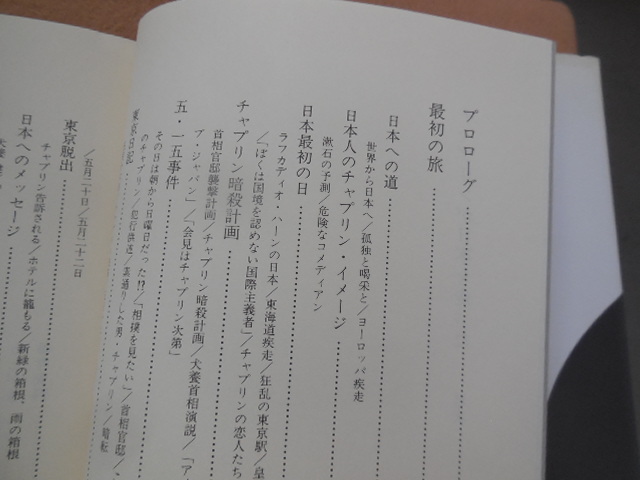 プロローグ
最初の旅
日本への道
世界から日本へ／孤独と喝采と／ヨーロッパ疾走
日本人のチャプリン・イメージ
漱石の予測／危険なコメディアン
日本最初の日
ラフカディオ・ハーンの日本／東海道疾走／狂乱の東京駅／皇
／「ぼくは国境を認めない国際主義者」／チャプリンの恋人たち
チャプリン暗殺計画
首相官邸襲撃計画／チャプリン暗殺計画／犬養首相演説／「ア
ブ・ジャパン」／「会見はチャプリン次第」
五・一五事件
その日は朝から日曜日だった!?／「相撲を見たい」／首相官邸／
のチャプリン／犯行供述／素通りした男 チャプリン／暗転
東京日記
／五月二十日／五月二十二日
東京脱出
チャプリン告訴される／ホテルに籠もる／新緑の箱根、雨の箱根
日本へのメッセージ
犬養健